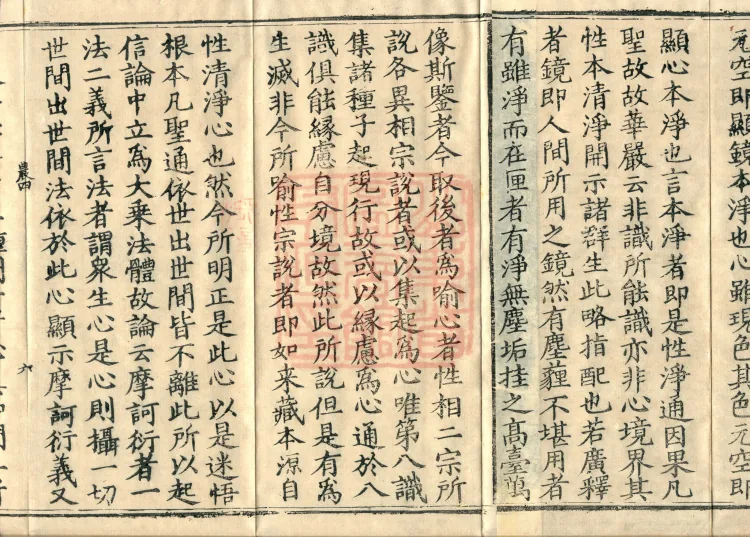 元空即顯鏡本淨也心雖現色其色元空即
顯心本淨也言本淨者即是性淨通因果凡
聖故故華嚴云非識所能識亦非心境界其
性本清淨開示諸群生此略指配也若廣釋
者鏡即人間所用之鏡然有塵薶不堪用者
有雖淨而在匣者有淨無塵垢挂之高臺萬
像斯鑒者今取後者為喻心者性相二宗所
說各異相宗說者或以集起為心唯第八識
集諸種子起現行故或以緣慮為心通於八
識俱能緣慮自分境故然此所說但是有為
生滅非今所喻性宗說者即如来藏本源自
性清淨心也然今所明正是此心以是迷悟
根本凡聖通依世出世間皆不離此所以起
信論中立為大乘法體故論云摩訶衍者一
法二義所言法者謂眾生心是心則攝一切
世間出世間法依於此心顯示摩訶衍義又
農四
六